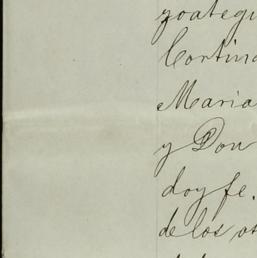 goategui
Cortina
Maria
y Don
doy fe.
de los ot